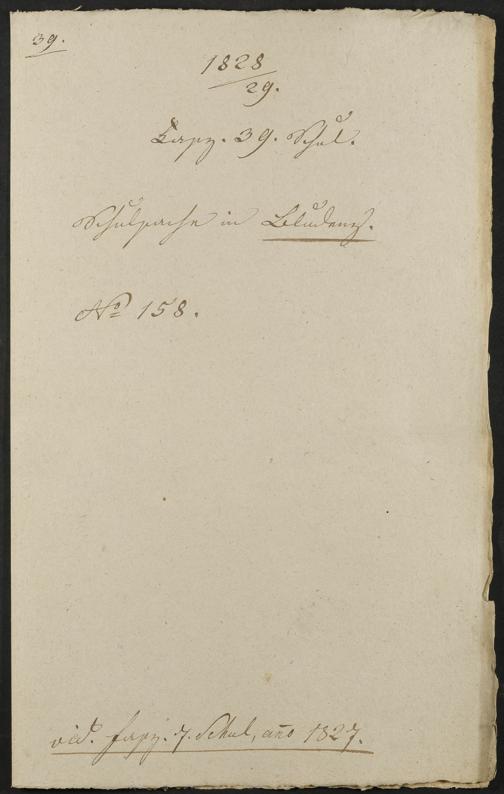 39.
1828
29.
Fasz. 39. Schul.
Schulsache in Bludenz.
No 158.
vid. fasz. 7. Schul, año 1827.